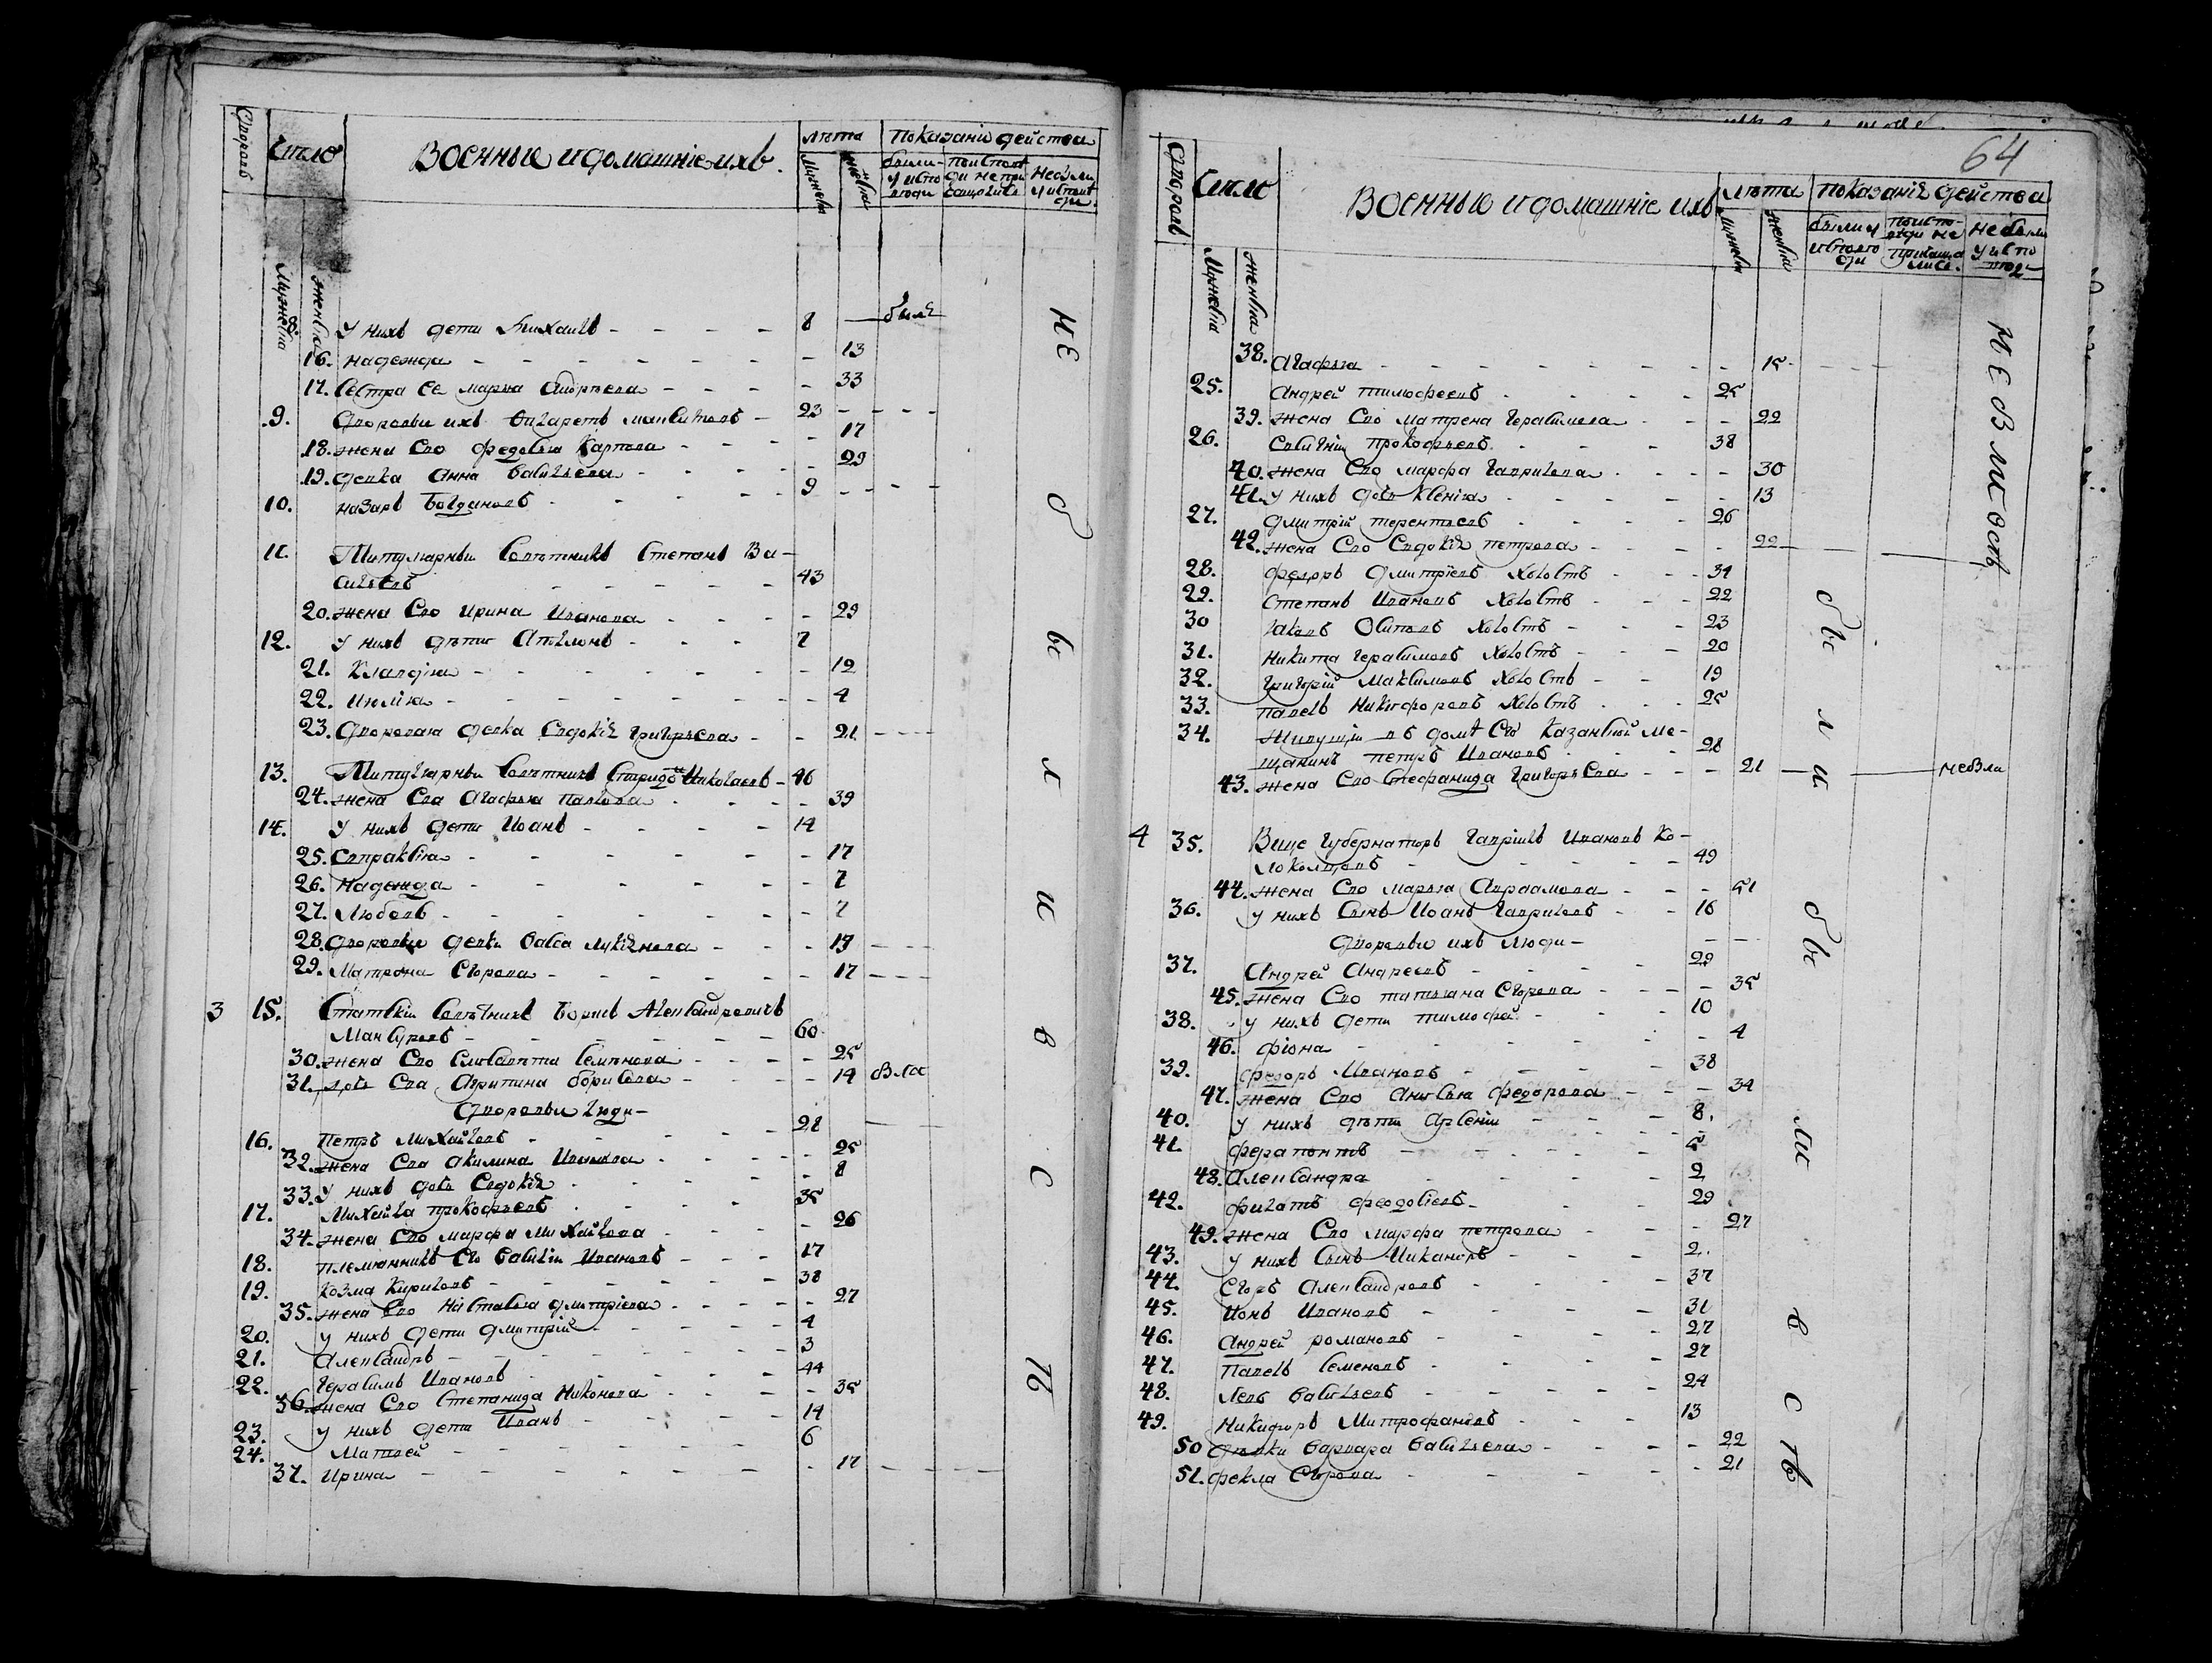 Дворовъ
Число
Военные и домашніе ихъ.
лѣта
Показаніе действа
Мужеска
женска
были у исповеди
по исповеди не приобщались
не были у исповеди
Мужеска
женска
8. У нихъ дети Михаилъ - - - - 8 — былъ
16. надежда - - - - - - - 13
17. Сестра ее марья Андреева - - - - 33
9. Дворовые ихъ - 23 - - - -
18. жена Его федосья Карпова - - - - 17
19. девка Анна Васильева - - - - 29
10. назаръ Богдановъ - - - - 9 - - - -
11. Титулярный Советникъ Степанъ Ва-
сильевъ - - - - - - 43
20. жена Его Ирина Иванова - - - - 29
12. У нихъ дѣти - - - - 7
21. Клавдія - - - - - - - 12
22. Июлія - - - - - - - - 4
23. Дворовая девка Евдокія Григорьева - - 21 - - - -
13. Титулярный Советникъ Спиридонъ Николаевъ - 46
24. жена Его Агафья Павлова - - - - 39
14. У нихъ дети Иоанъ - - - - 14
25. Евпраксія - - - - - - - 17
26. Надежда - - - - - - - 7
27. Любовь - - - - - - - 7
28. Дворовые девки Васса Лукіянова - - - 19 - - -
29. Матрона Егорова - - - - - - 17 - - -
3 15. Статскій Советникъ Борисъ Александровичъ
Мансуровъ - - - - - - - 60
30. жена Его Елисавета Семенова - - - - 25
31. дочь Его Агрипина Борисова - - - - 14 была
Дворовые люди -
16. Петръ Михайловъ - - - - - 28
32. жена Его Акилина Иванова - - - - 25
33. У нихъ дочь Евдокія - - - - 8
17. Михайла прокофьевъ - - - - 35
34. жена Его марфа Михайлова - - - 26
18. племянникъ Его Василій Ивановъ - - - 17
19. Козма Кириловъ - - - - - - 38
35. жена Его Настасья дмитріева - - - - 27
20. У нихъ дети дмитрій - - - - - 4
21. Александръ - - - - - - - 3
22. Герасимъ Ивановъ - - - - - 44
36. жена Его Степанида Никонова - - - 35
23. У нихъ дети Иванъ - - - - 14
24. Матвей - - - - - - - 6
37. Ирина - - - - - - - 17 - - - -
не были в с ть
64
Дворовъ
Число
Военные и домашніе ихъ
Лѣта
Показанія действа
Мужеска
женска
были у исповеди
по исповеди не приобщались
не были у исповеди
Мужеска
женска
38. Агафья - - - - - - - 15 - - - -
25. Андрей тимофеевъ - - - - 25
39. жена Его матрена Герасимова - - - 22
26. прокофьевъ - - - - 38
40. жена Его марфа Гаврилова - - - - 30
41. У нихъ дочь Ксенія - - - - - 13
27. дмитрій терентьевъ - - - - 26
42. жена Его Евдокія петрова - - - - 22
28. федоръ дмитріевъ Холостъ - - - 34
29. Степанъ Ивановъ Холостъ - - - 22
30 Іаковъ Осиповъ Холостъ - - - 23
31. Никита Герасимовъ Холостъ - - - 20
32. Григорій Максимовъ Холостъ - - 19
33. Павелъ Никифоровъ Холостъ - - - 25
34. Живущій въ доме Его Казанской ме-
щанинъ петръ Ивановъ - - - 28
43. жена Его Стефанида Григорьева - - - 21 не была
4 35. Вице Губернаторъ Гавріилъ Ивановъ Ко-
локолцовъ - - - - - 49
44. жена Его марья Авраамова - - - 51
36. У нихъ Сынъ Иоанъ Гавриловъ - - 16
Дворовые ихъ люди -
37. Андрей Андреевъ - - - - 29
45. жена Его татьяна Егорова - - - - 35
38. У нихъ дети тимофей - - - 10
46. фіона - - - - - - - 4
39. федоръ Ивановъ - - - - - 38
47. жена Его Анисья федорова - - - 34
40. У нихъ дѣти Арсеній - - - 8.
41. ферапонтъ - - - - - - 5
48. Александра - - - - - - 2
42. филатъ феодосіевъ - - - - 29
49. жена Его марфа петрова - - - 27
43. У нихъ Сынъ Никаноръ - - - 2.
44. Егоръ Александровъ - - - - 37
45. Ионъ Ивановъ - - - - - 31
46. Андрей романовъ - - - - 27
47. Павелъ Семеновъ - - - - 27
48. Левъ Васильевъ - - - - - 24
49. Никифоръ Митрофановъ - - - 13
50 девки Варвара Васильева - - - - 22
51. фекла Егорова - - - - - 21